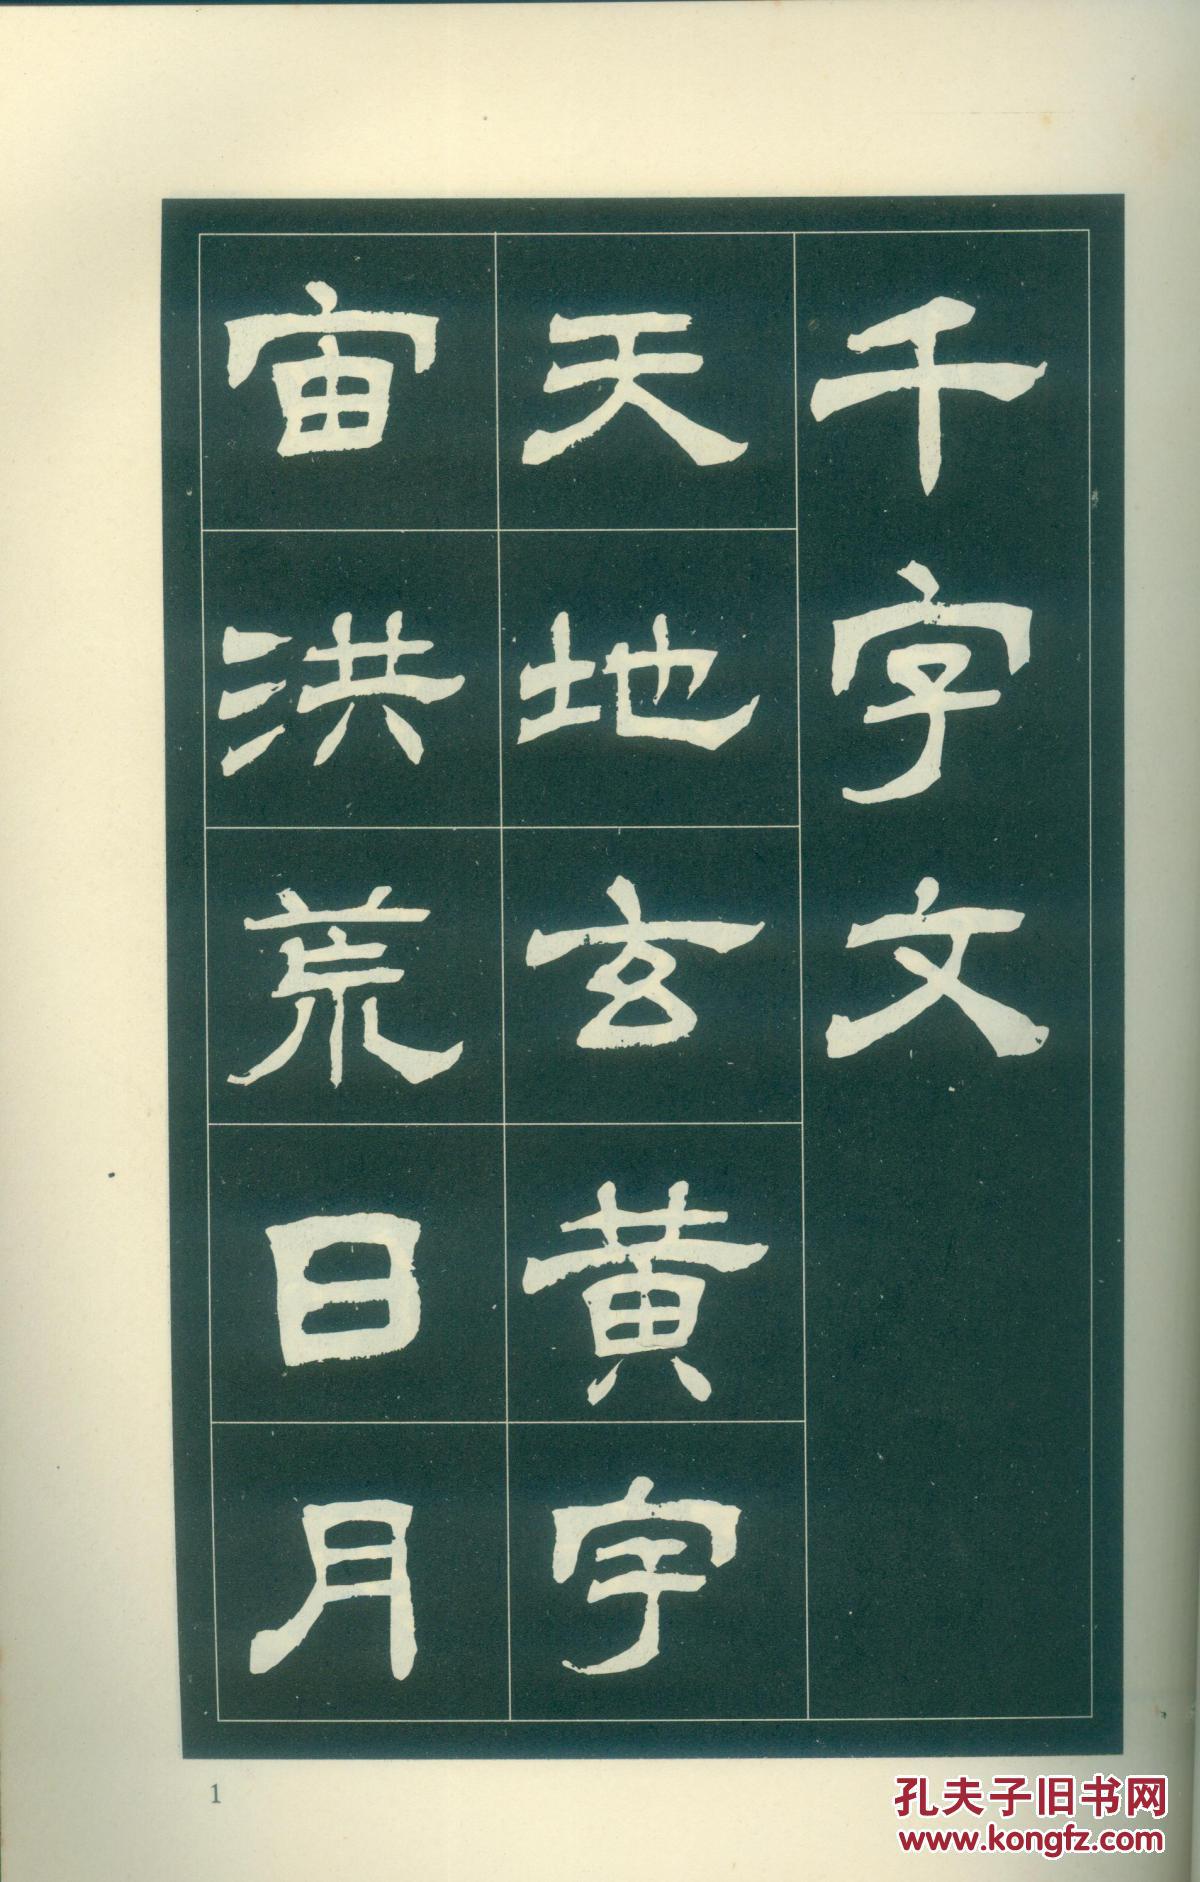 千字文
天地玄黄宇
宙洪荒日月
1
孔夫子旧书网
www.kongfz.com